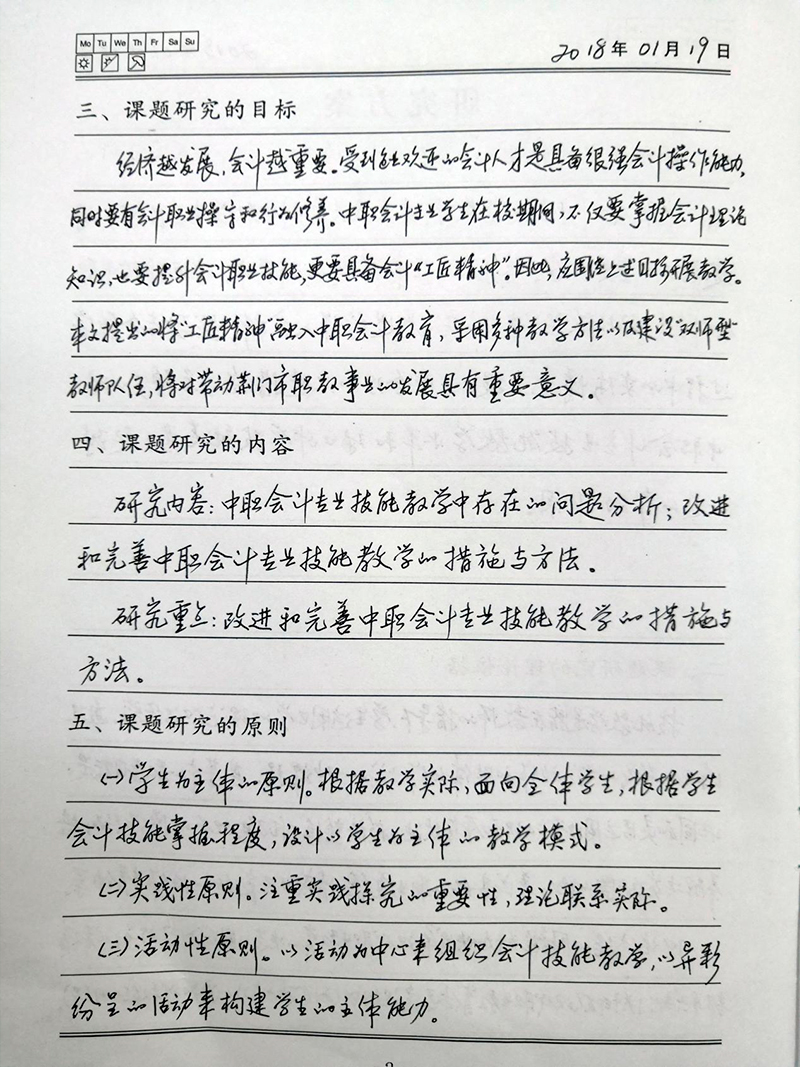 Mo Tu We Th Fr Sa Su
2018年01月19日
三、课题研究的目标
经济越发展,会计越重要。受到企业欢迎的会计人才是具备很强会计操作能力,
同时要有会计职业操守和行为修养。中职会计专业学生在校期间,不仅要掌握会计理论
知识,也要提升会计职业技能,更要具备会计“工匠精神”。因此,应围绕上述目标开展教学。
本文提出的将“工匠精神”融入中职会计教育,采用多种教学方法以及建设“双师型”
教师队伍,将对带动荆门市职教事业的发展具有重要意义。
四、课题研究的内容
研究内容:中职会计专业技能教学中存在的问题分析;改进
和完善中职会计专业技能教学的措施与方法。
研究重点:改进和完善中职会计专业技能教学的措施与
方法。
五、课题研究的原则
(一)学生为主体的原则。根据教学实际,面向全体学生,根据学生
会计技能掌握程度,设计以学生为主体的教学模式。
(二)实践性原则。注重实践探究的重要性,理论联系实际。
(三)活动性原则。以活动为中心来组织会计技能教学,以异彩
纷呈的活动来构建学生的主体能力。